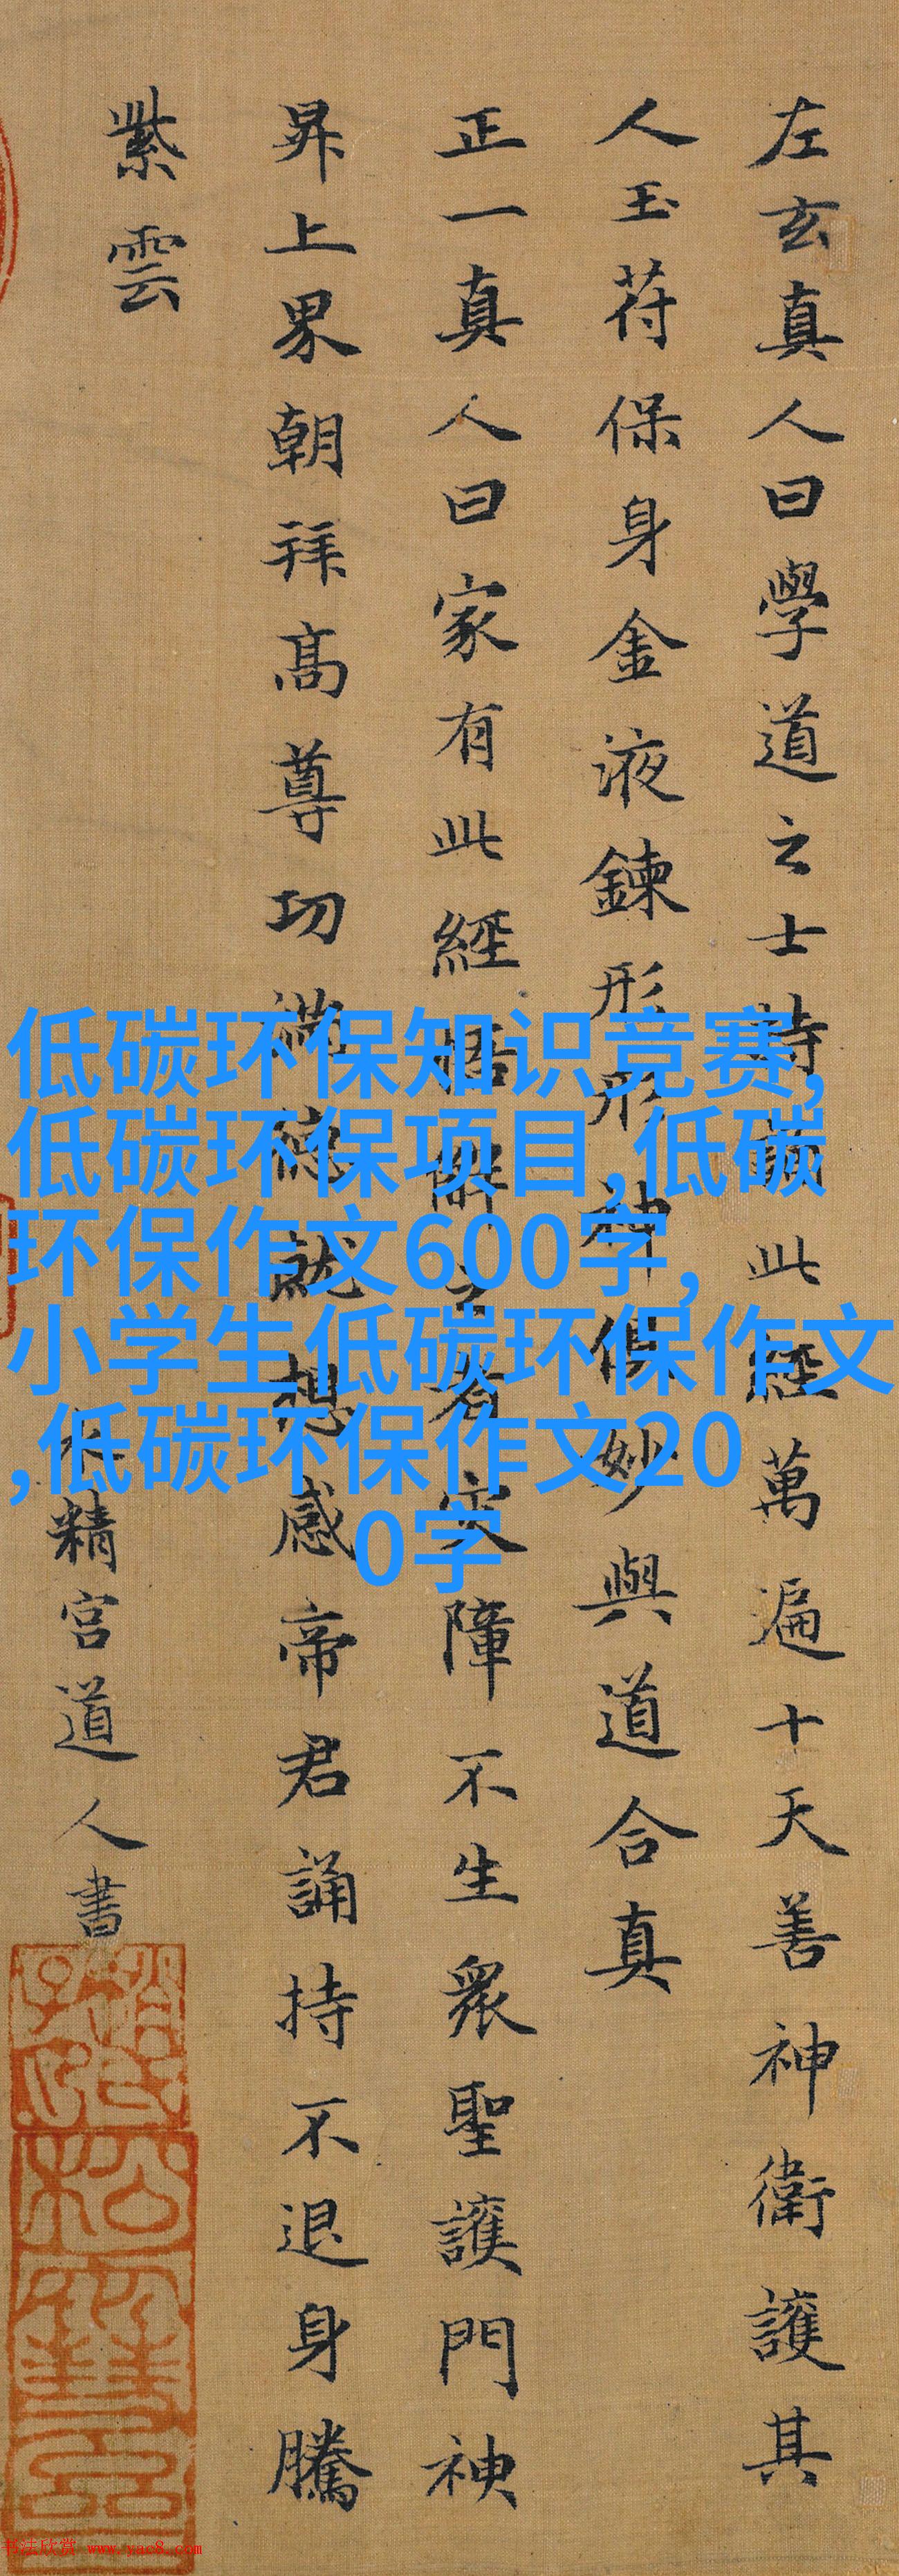 左玄真人曰學道之士持誦此經萬遍十天善神衛護其
人玉苻保身金液鍊形形神俱妙與道合真
正一真人曰家有此經悟解之者灾障不生衆聖護門神
昇上界朝拜高尊功滿德就想感帝君誦持不退身騰
紫雲
水精宮道人書
低碳环保知识竞赛,
低碳环保项目,低碳
环保作文600字,
小学生低碳环保作文
,低碳环保作文20
0字
书法欣赏 www.yac8.com